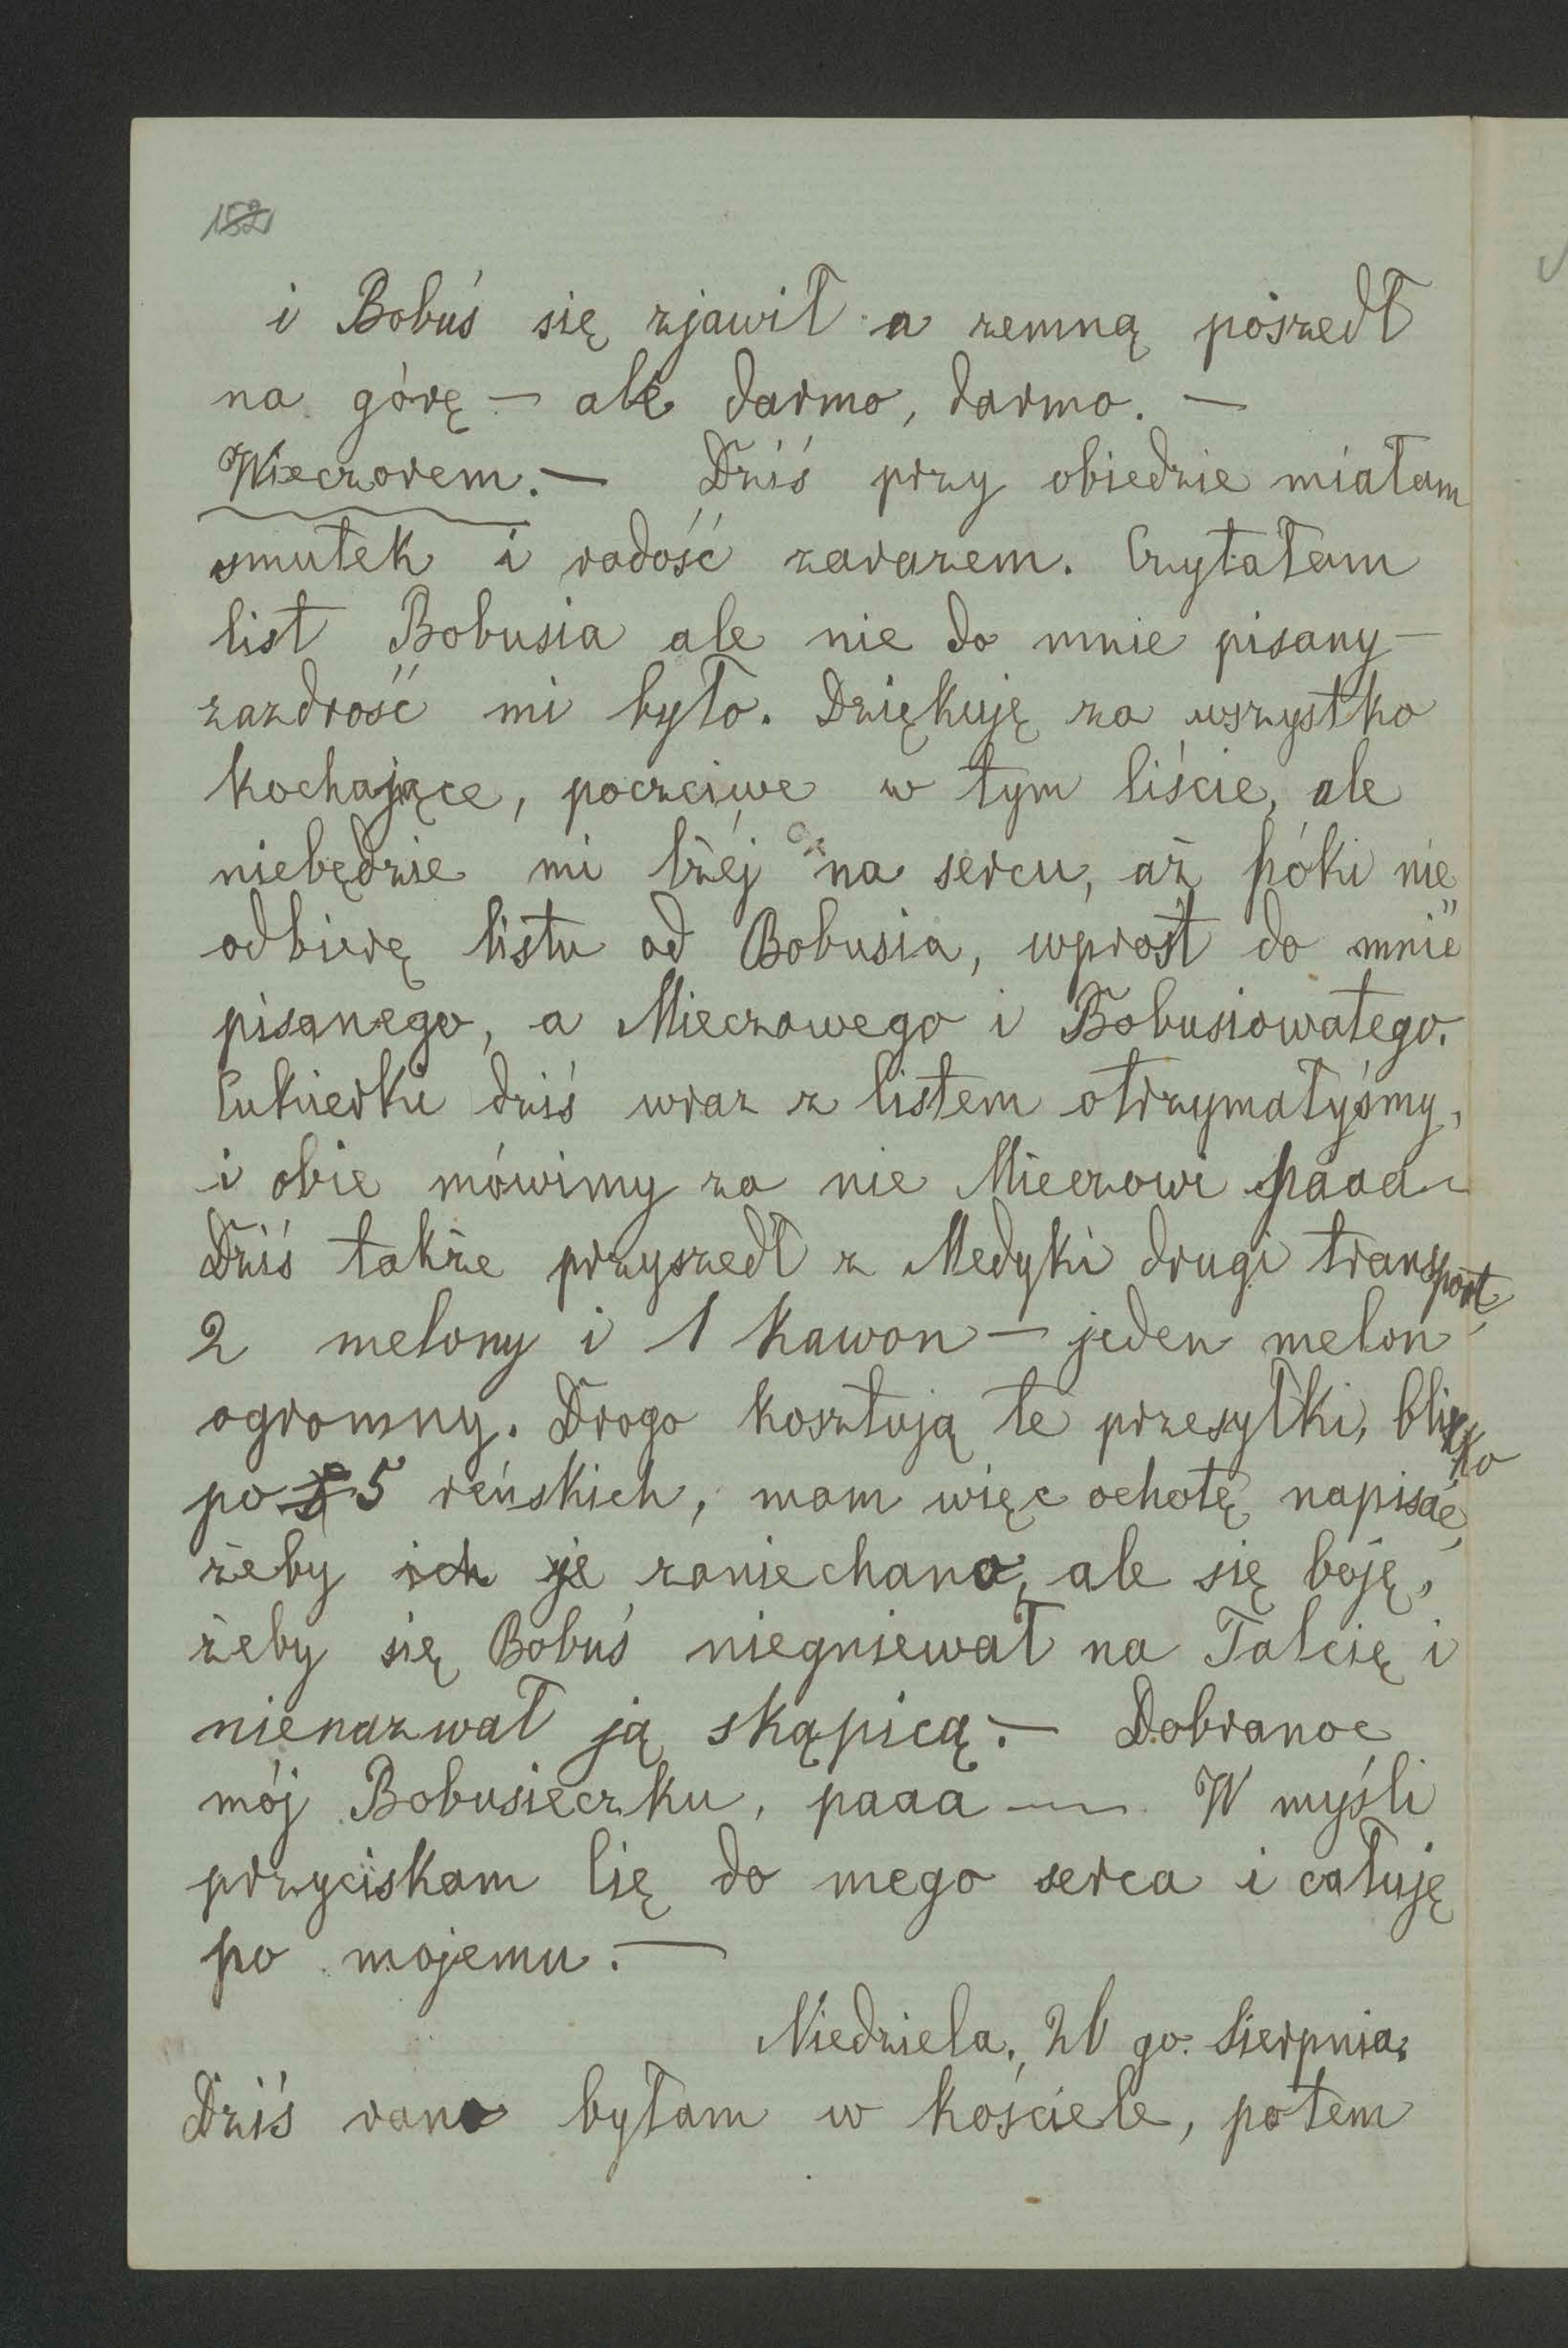 152
i Bobuś się zjawił a zemną poszedł
na górę — ale darmo, darmo. —
Wieczorem. — Dziś przy obiedzie miałam
smutek i radość zarazem. Czytałam
list Bobusia ale nie do mnie pisany —
zazdrość mi było. Dziękuję za wszystko
kochające, poczciwe w tym liście, ale
niebędzie mi lżéj na sercu, aż póki nie
odbierę listu od Bobusia, wprost do mnie
pisanego, a Mieczowego i Bobusiowatego.
Cukierki dziś wraz z listem otrzymałyśmy,
i obie mówimy za nie Mieczowi paaa
Dziś także przyszedł z Medyki drugi transport,
2 melony i 1 kawon — jeden melon
ogromny. Drogo kosztują te przesyłki, blizko
po 5 reńskich, mam więc ochotę napisać,
żeby ich je zaniechano, ale się boję,
żeby się Bobuś niegniewał na Talcię i
nienazwał ją skąpicą. — Dobranoc
mój Bobusieczku, paaa — W myśli
przyciskam Cię do mego serca i całuję
po mojemu. —
Niedziela, 26 go. Sierpnia.
Dziś rano byłam w kościele, potem